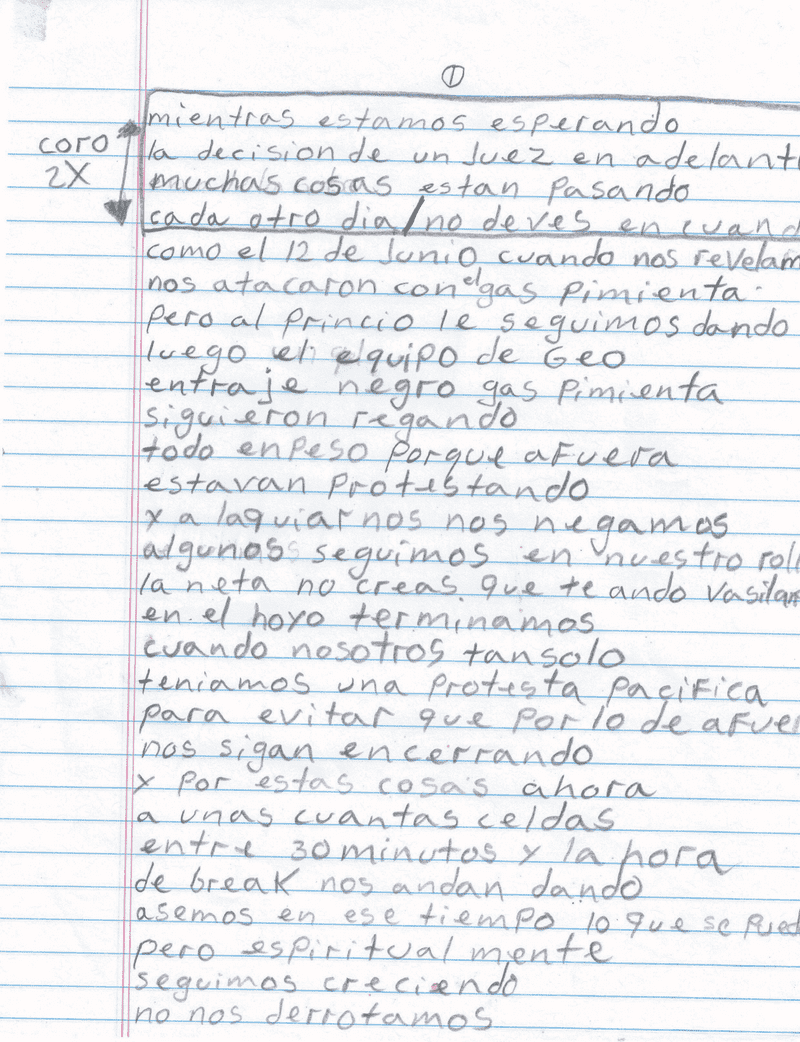 ①
coro
2X
mientras estamos esperando
la decision de un Juez en adelant
muchas cosas estan pasando
cada otro dia/no deves en cuand
como el 12 de Junio cuando nos revelam
nos atacaron con el gas pimienta
pero al princio le seguimos dando
luego el equipo de Geo
entraje negro gas pimienta
siguieron regando
todo enpeso porque afuera
estavan protestando
y a laquiarnos nos negamos
algunos seguimos en nuestro roll
la neta no creas que te ando vasilan
en el hoyo terminamos
cuando nosotros tansolo
teniamos una protesta pacifica
para evitar que por lo de afuer
nos sigan encerrando
y por estas cosas ahora
a unas cuantas celdas
entre 30 minutos y la hora
de break nos andan dando
asemos en ese tiempo lo que se pued
pero espiritual mente
seguimos creciendo
no nos derrotamos